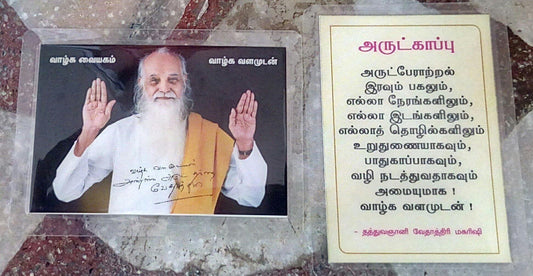 வாழ்க வையகம்
வாழ்க வளமுடன்
அருட்காப்பு
அருட்பேராற்றல்
இரவும் பகலும்,
எல்லா நேரங்களிலும்,
எல்லா இடங்களிலும்,
எல்லாத் தொழில்களிலும்
உறுதுணையாகவும்,
பாதுகாப்பாகவும்,
வழி நடத்துவதாகவும்
அமையுமாக !
வாழ்க வளமுடன் !
- தத்துவஞானி வேதாத்திரி மகரிஷி